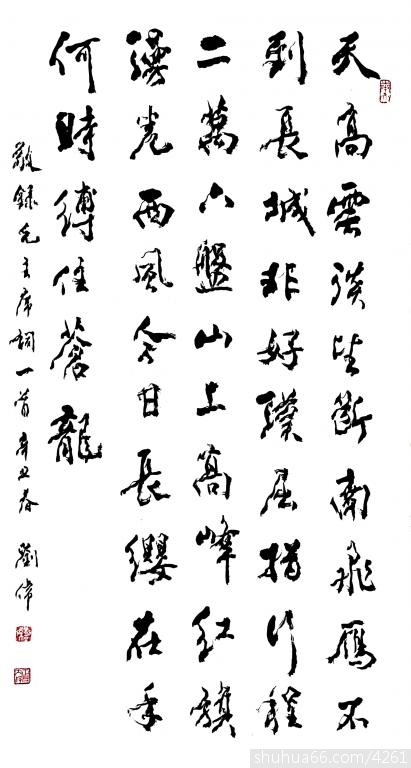 天高雲淡望斷南飛雁不
到長城非好漢屈指行程
二萬六盤山上高峰紅旗
漫卷西風今日長纓在手
何時縛住蒼龍
敬錄毛主席詞一首辛丑春 劉偉
shuhua66.com/4261